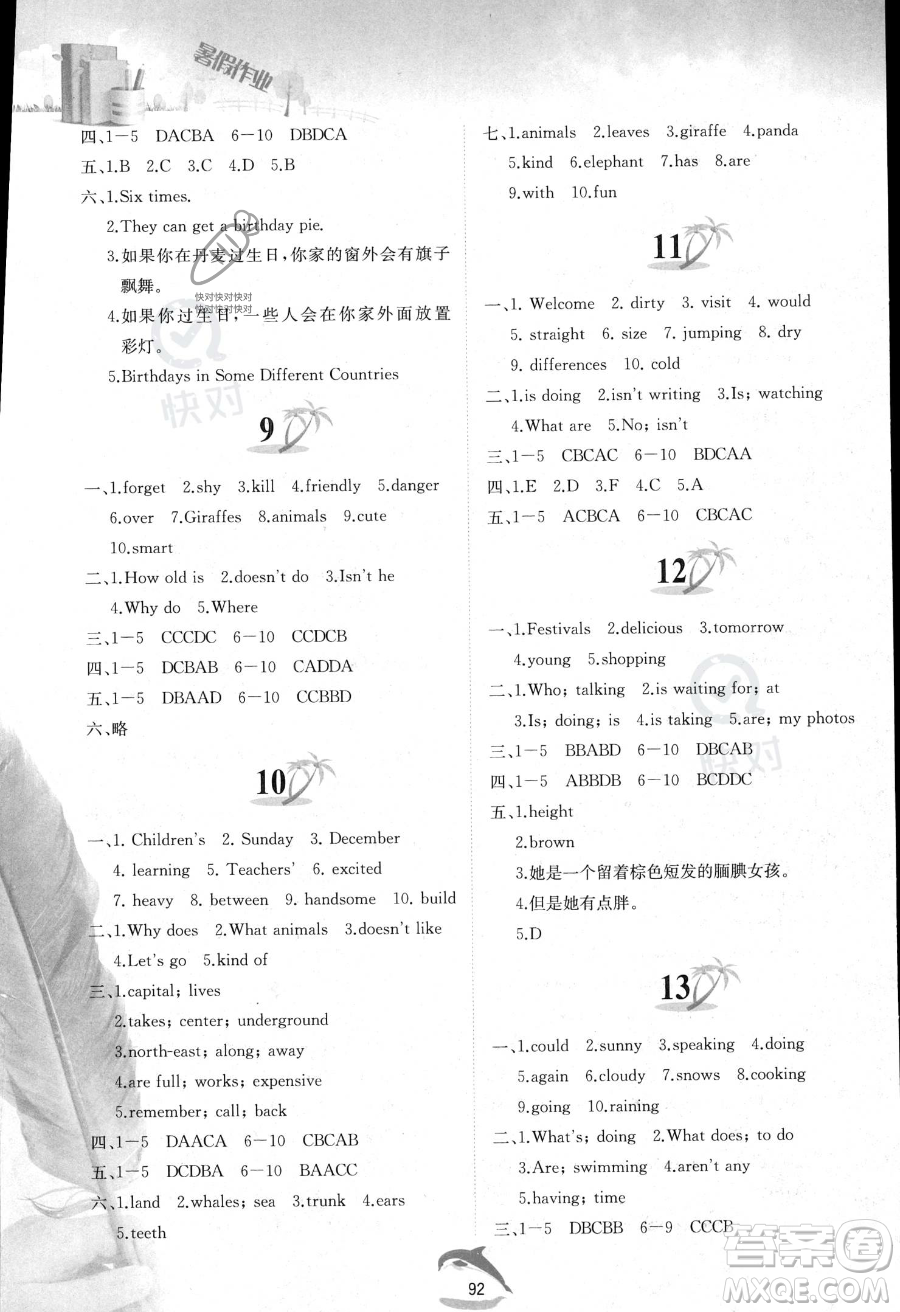 暑假作业
四、1—5 DACBA 6—10 DBDCA
五、1.B 2.C 3.A 4.D 5.B
六、1.Six times.
2.They can get a birthday pie.
3.如果你在丹麦过生日,你家的窗外会有旗子
飘舞。
4.如果你过生日,一些人会在你家外面放置
彩灯。
5.Birthdays in Some Different Countries
快对快对快对
快对快对快对
快对
9
一、1.forget 2.shy 3.kill 4.friendly 5.danger
6.over 7.Giraffes 8.animals 9.cute
10.smart
二、1.How old is 2.doesn't do 3.Isn't he
4.Why do 5.Where
三、1—5 CCCDC 6—10 CCDCB
四、1—5 DCBAB 6—10 CADDA
五、1—5 DBAAD 6—10 CCBBD
六、略
10
一、1. Children's 2. Sunday 3. December
4. learning 5. Teachers' 6. excited
7. heavy 8. between 9. handsome 10. build
二、1.Why does 2.What animals 3.doesn't like
4.Let's go 5.kind of
三、1.capital; lives
2.takes; center; underground
3.north-east; along; away
4.are full; works; expensive
5.remember; call; back
四、1—5 DAACA 6—10 CBCAB
五、1—5 DCDBA 6—10 BAACC
六、1.land 2.whales; sea 3.trunk 4.ears
5.teeth
七、1.animals 2.leaves 3.giraffe 4.panda
5.kind 6.elephant 7.has 8.are
9.with 10.fun
11
一、1. Welcome 2. dirty 3. visit 4. would
5. straight 6. size 7. jumping 8. dry
9. differences 10. cold
二、1.is doing 2.isn't writing 3.Is; watching
4.What are 5.No; isn't
三、1—5 CBCAC 6—10 BDCAA
四、1.E 2.D 3.F 4.C 5.A
五、1—5 ACBCA 6—10 CBCAC
12
一、1.Festivals 2.delicious 3.tomorrow
4.young 5.shopping
二、1.Who; talking 2.is waiting for; at
3.Is; doing; is 4.is taking 5.are; my photos
三、1—5 BBABD 6—10 DBCAB
四、1—5 ABBDB 6—10 BCDDC
五、1.height
2.brown
3.她是一个留着棕色短发的腼腆女孩。
4.但是她有点胖。
5.D
快对
13
一、1.could 2.sunny 3.speaking 4.doing
5.again 6.cloudy 7.snows 8.cooking
9.going 10.raining
二、1.What's; doing 2.What does; to do
3.Are; swimming 4.aren't any
5.having; time
三、1—5 DBCBB 6—9 CCCB
92
答案圈
MXQE.COM